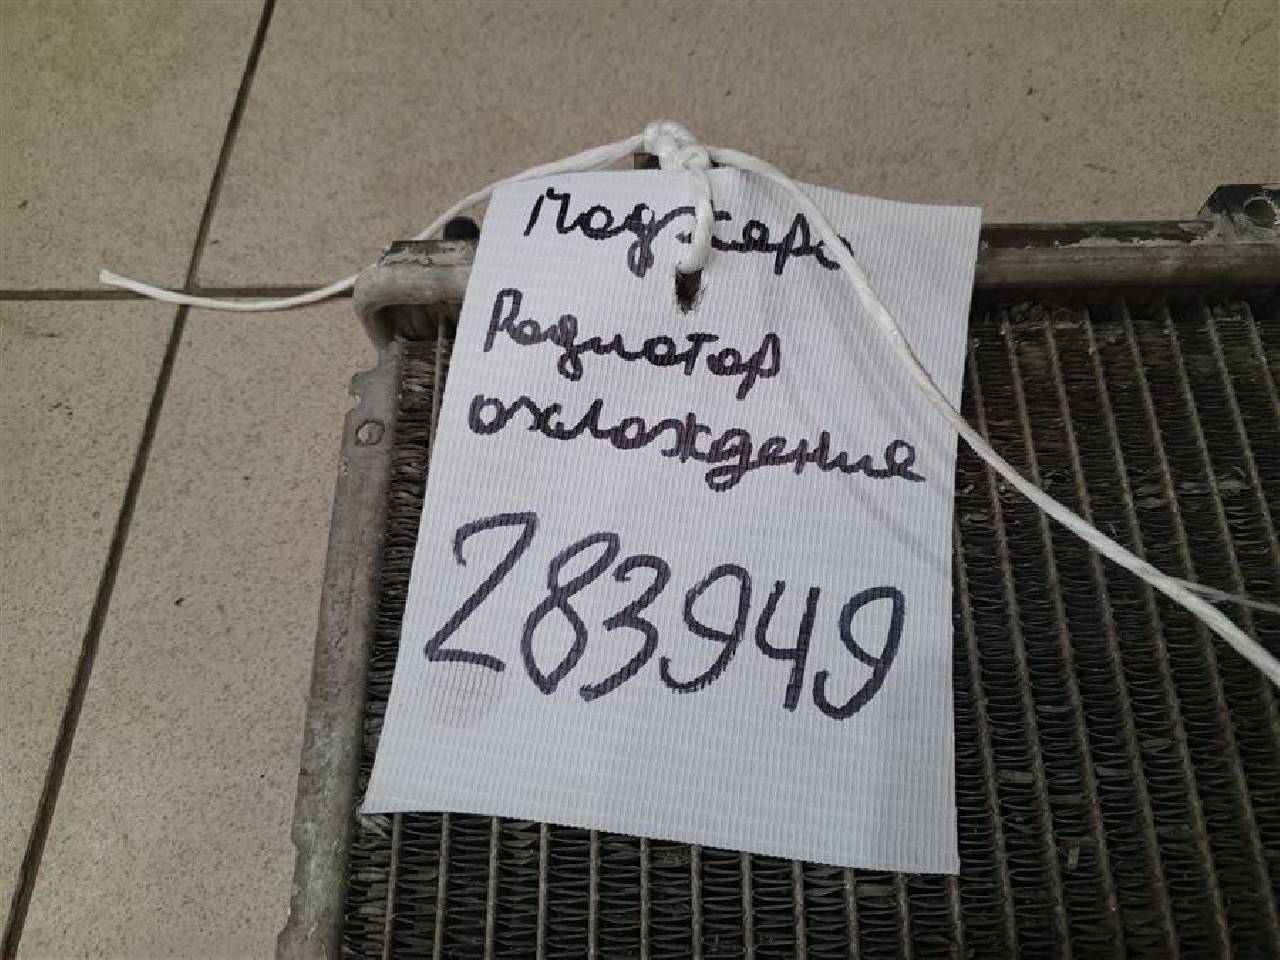 Маджеро
Радиатор
охлаждения
283949